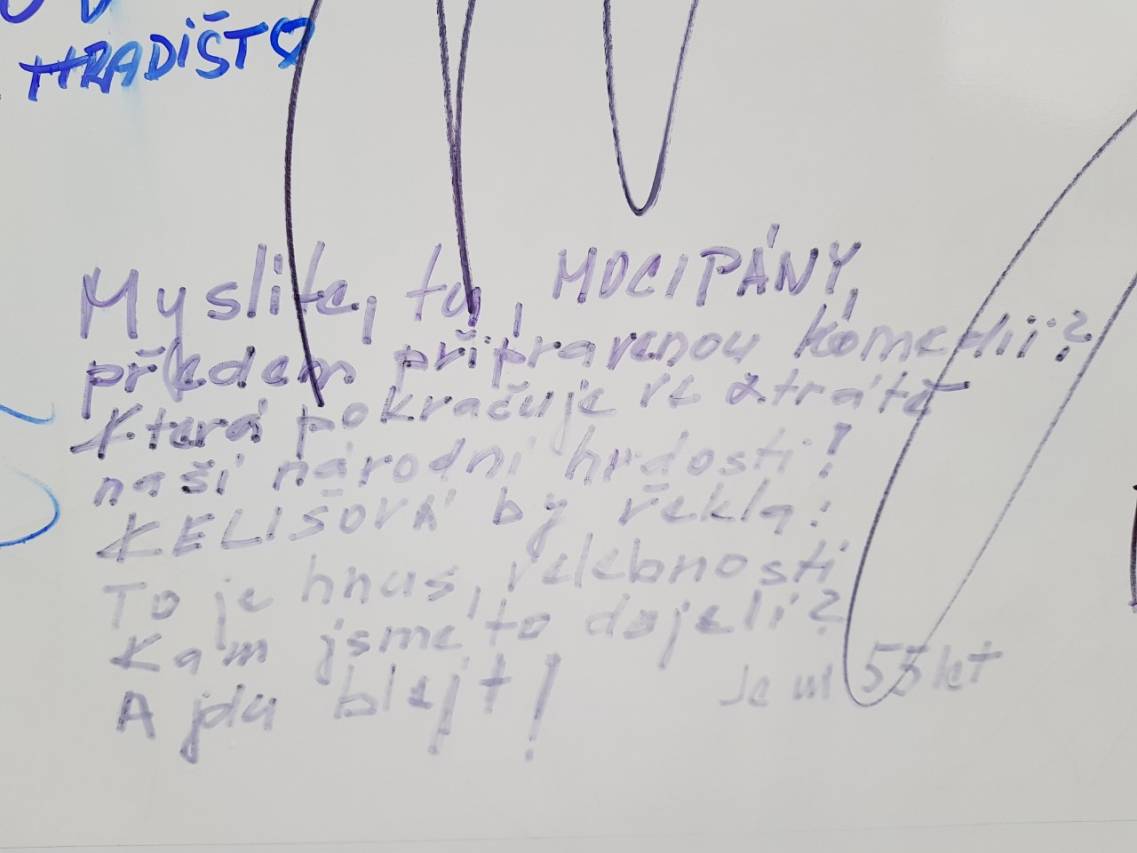 HRADIŠTO
Myslíte, tu, MOCIPÁNY,
předem připravenou komedii?
Která pokračuje ve ztrátě
naší národní hrdosti!
KELIŠOVÁ by řekla:
To je hnus, velebnosti
Kam jsme to dojeli?
A jdu blejt!
Je mi 55 let